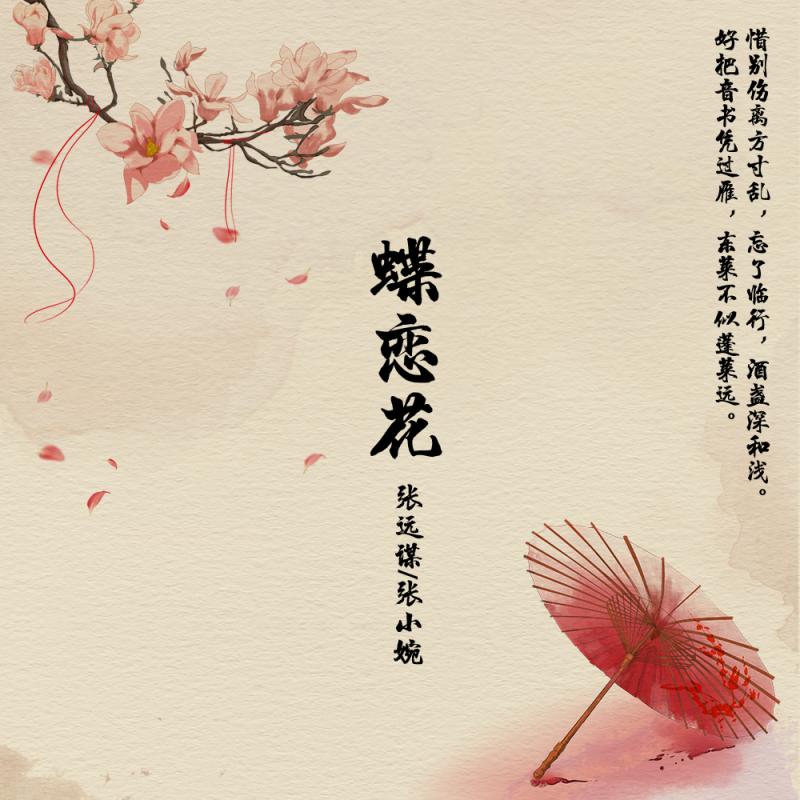 惜别伤离方寸乱，忘了临行，酒盏深和浅。
好把音书凭过雁，东莱不似蓬莱远。
蝶恋花
张远谋/张小婉